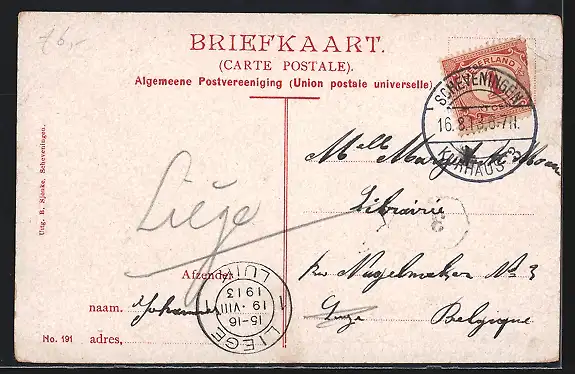 76,-
BRIEFKAART.
(CARTE POSTALE).
Algemeene Postvereeniging (Union postale universelle)
NEDERLAND
SCHEVENINGEN
16.8.13.6-7N.
KURHAUS
Uitg. R. Sjenke, Scheveningen.
Liège
Mell
Librairie
Nagelmakers No 3
Belgique
3
Afzender
naam. Johanna
No. 191 adres,
1 LUIK
1913
19·VIII
15-16
LIEGE 1